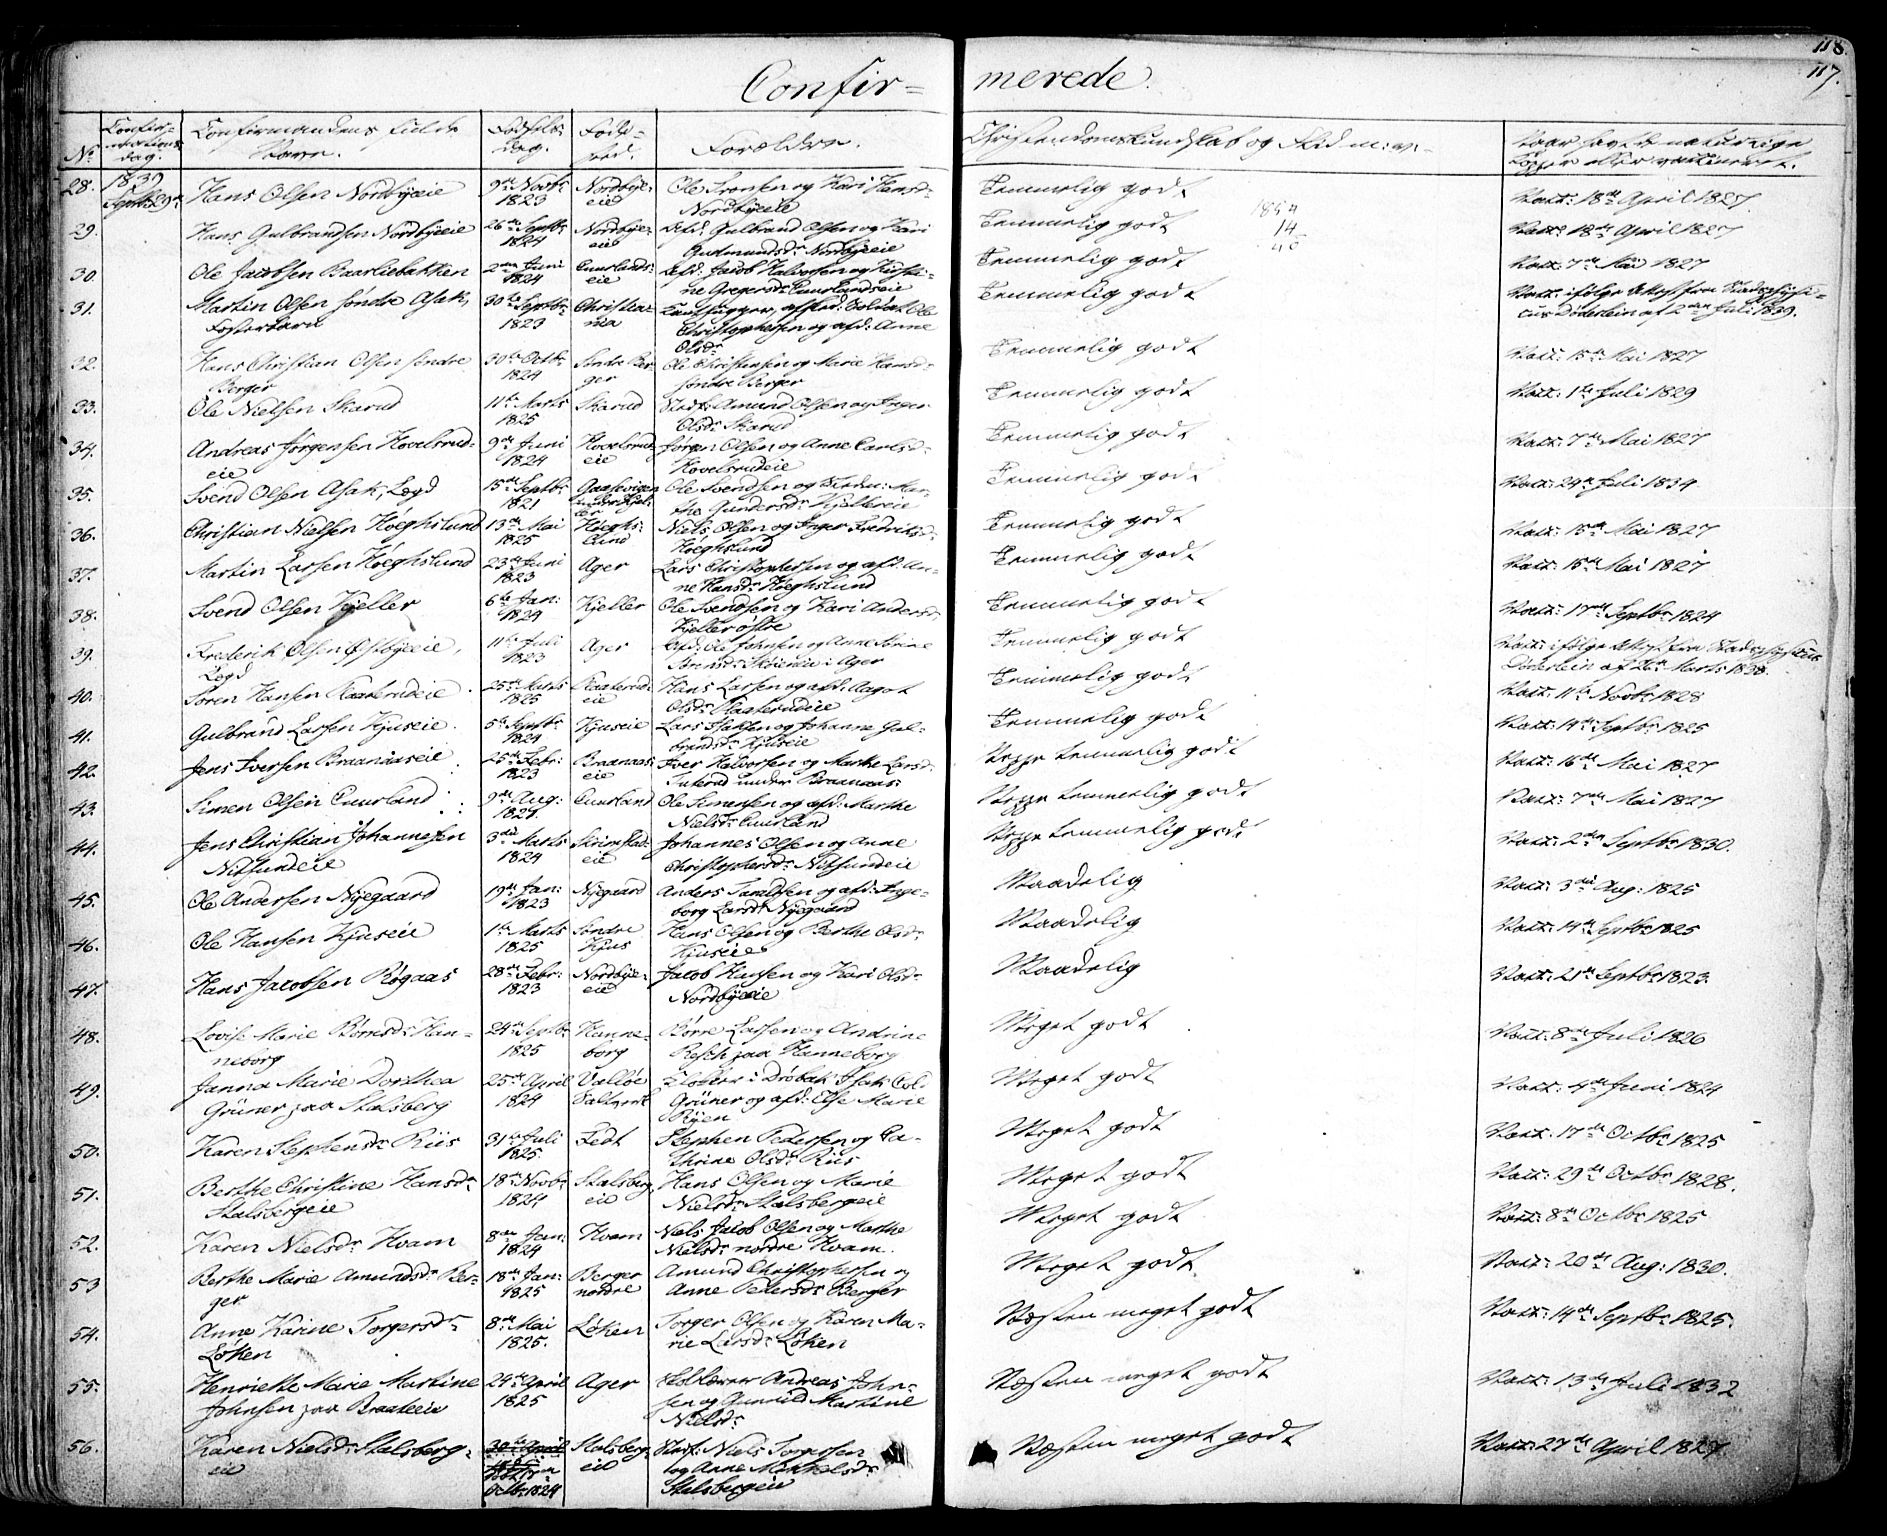 118.
117.
Confir= merede.
No
Confir=
mations
dag.
Confirmandens fulde
Navn.
Fødsels
dag.
Føde-
sted.
Forældre.
Christendomskundskab og Flid m: v:
Naar havt de naturlige
Kopper eller vaccineret.
28. 1839 Septbr 29de Hans Olsen Nordbyeie 9de Novbr 1823 Nordbye- eie Ole Svensen og Kari Hansdr Nordbyeie Temmelig godt Vacc: 18de April 1827
29. Hans Gulbrandsen Nordbyeie 26de Septbr 1824 Nordbye- eie Afd: Gulbrand Olsen og Kari Gudmundsdr Nordbyeie Temmelig godt Vacc: 18de April 1827
1854
14
40
30. Ole Jacobsen Baarliebakken 2den Juni 1824 Cuurlands- eie Afd: Jacob Halvorsen og Kirsti- ne Gregersdr Cuurlandseie Temmelig godt Vacc: 7de Mai 1827
31. Martin Olsen søndre Asak, Fosterbarn 30te Septbr 1823 Christia- nia afsked. Soldat Ole Christophersen og afd: Anne Olsdr Temmelig godt Vacc: ifølge Attest fra Stadsphysi- cus Døderlein af 2den Juli 1839.
32. Hans Christian Olsen søndre Berger 30te Octbr 1824 Søndre Ber- ger Ole Christensen og Marie Hansdr søndre Berger Temmelig godt Vacc: 15de Mai 1827
33. Ole Nielsen Skarud 11te Marts 1825 Skarud Amund Olsen og Inger Olsdr Skarud Temmelig godt Vacc: 1ste Juli 1829
34. Andreas Jørgensen Hovelsrud- eie 9de Juni 1824 Hovelsrud- eie Jørgen Olsen og Anne Carlsdr Hovelsrudeie Temmelig godt Vacc: 7de Mai 1827
35. Svend Olsen Asak, Legd 15de Septbr 1821 Gaasevigen under Kjel- ler Ole Svendsen og Mar- the Gundersdr Kjellereie Temmelig godt Vacc: 24de Juli 1834
36. Christian Nielsen Høeghslund 13de Mai 1825 Høeghs- lund Niels Olsen og Inger Fredriksdr Høeghslund Temmelig godt Vacc: 15de Mai 1827
37. Martin Larsen Høeghslund 23de Juni 1823 Ager Lars Christophersen og afd: An- ne Hansdr Høeghslund Temmelig godt Vacc: 15de Mai 1827
38. Svend Olsen Kjeller 6te Jan: 1824 Kjeller Ole Svendsen og Kari Andersdr Kjeller østre Temmelig godt Vacc: 17de Septbr 1824
39. Frederik Olsen Østbyeie, Legd 11te Juli 1823 Ager Afd: Ole Johnsen og Anne Sørine i Ager Temmelig godt Vacc: ifølge Attest fra Stadsphysicus Døderlein af Marts 1838.
40. Søren Hansen Kaaterudeie 25de Marts 1825 Kaaterud- eie Hans Larsen og afd: Aagot Olsdr Kaaterudeie Temmelig godt Vacc: 11te Novbr 1828
41. Gulbrand Larsen Kjuseie 5te Septbr 1824 Kjuseie Lars Isaksen og Johanne Gul- brandsdr Kjuseie Temmelig godt Vacc: 14de Septbr 1825
42. Jens Iversen Braanaaseie 25de Febr: 1823 Braanaas- eie Iver Halvorsen og Marthe Larsdr under Braanaas Neppe temmelig godt Vacc: 16de Mai 1827
43. Simen Olsen Cuurland 9de Aug: 1824. Cuurland Ole Simensen og afd: Marthe Nielsdr Cuurland Neppe temmelig godt Vacc: 7de Mai 1827
44. Jens Christian Johannesen Nitsundeie 3die Marts 1824 Skrimstad- eie Johannes Olsen og Anne Christophersdr Nitsundeie Neppe temmelig godt Vacc: 2den Septbr 1830.
45. Ole Andersen Nyegaard 19de Jan: 1823 Nyegaard Anders Taraldsen og afd: Inge- borg Larsdr Nyegaard Maadelig Vacc: 3die Aug: 1825
46. Ole Hansen Kjuseie 1ste Marts 1825 Søndre Kjus Hans Olsen og Berthe Olsdr Kjuseie Maadelig Vacc: 14de Septbr 1825
47. Hans Jacobsen Røgaas 28de Febr: 1823 Nordbye- eie Jacob Hansen og Kari Olsdr Nordbyeie Maadelig Vacc: 21de Septbr 1823
48. Lovise Marie Børresdr Han- neborg 24de Septbr 1825 Hanne- borg Børre Larsen og Andrine Resch paa Hanneborg Meget godt Vacc: 8de Juli 1826
49. Janna Marie Dorthea Grüner paa Stalsberg 25de April 1824 Valløe Saltverk i Drøbak Isak Grüner og afd: Else Marie Ryen Meget godt Vacc: 4de Juni 1824
50. Karen Stephensdr Riis 31te Juli 1825. Fedt Stephen Pedersen og Ca- thrine Olsdr Riis Meget godt Vacc: 17de Octbr 1825
51. Berthe Christine Hansdr Stalsbergeie 18de Novbr 1824 Stalsberg- eie Hans Olsen og Marie Nielsdr Stalsbergeie Meget godt Vacc: 29de Octbr 1828.
52. Karen Nielsdr Hvam 8de Jan: 1824 Hvam Niels Jacob Olsen og Marthe Nielsdr nordre Hvam. Meget godt Vacc: 8de Octbr 1825
53 Berthe Marie Amundsdr Ber- ger. 18de Jan: 1825 Berger nordre Amund Christophersen og Anne Pedersdr Berger Meget godt Vacc: 20de Aug: 1830.
54. Anne Karine Torgersdr Løken 8de Mai 1825. Løken Torger Olsen og Karen Ma- rie Larsdr Løken Næsten meget godt Vacc: 14de Septbr 1825.
55. Henriette Marie Martine Johnsen paa Braateeie 24de April 1825 Ager Andreas John- sen og Gunild Martine Nielsdr Næsten meget godt Vacc: 13de Juli 1832
56. Karen Nielsdr Stalsberg- eie Octbr 1824 Stalsberg- eie Niels Torgersen og Anne Mikkelsdr Stalsbergeie Næsten meget godt Vacc: 27de April 1827.